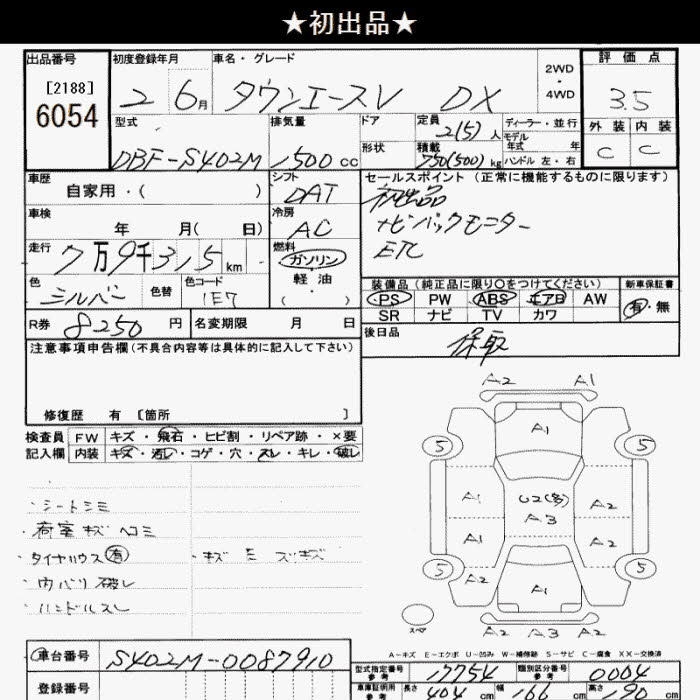 ★初出品★
出品番号
[2188]
6054
初度登録年月
2 6月
車名・グレード
タウンエースV DX
2WD
・
4WD
評価点
3.5
外装 内装
C C
型式
DBF-S402M
排気量
1500 cc
ドア
形状
定員
2(5)人
積載
750(500)kg
ディーラー・並行
モデル
年式 年
ハンドル 左・右
車歴
自家用・( )
シフト
DAT
セールスポイント(正常に機能するものに限ります)
初出品
ナビバックモニター
ETC
車検
年 月( 日)
冷房
AC
走行
7万9千315km
燃料
ガソリン
・
軽油
( )
色
シルバー
色替
色コード
1E7
装備品(純正品に限り○をつけてください)
PS PW ABS エアB AW
SR ナビ TV カワ
新車保証書
有・無
R券 8250円
名変期限 月 日
後日品
保取
注意事項申告欄(不具合内容等は具体的に記入して下さい)
修復歴 有 〔箇所 〕
検査員
記入欄
FW キズ・飛石・ヒビ割・リペア跡・×要
内装 キズ・汚レ・コゲ・穴・スレ・キレ・破レ
・シートシミ
・荷室キズ ヘコミ
・タイヤハウス(有) ・キズ ミ ズキズ
・内バリ破レ
・ハンドルスレ
A2 A1
A1
5 5
A1 U2(多) A2
A3
A1 A2
5 5
A2 A1 A2
スペア
A2 A3 A2
A-キズ E-エクボ U-凹み W-補修跡 S-サビ C-腐食 XX-交換済
車台番号 S402M-0087910
登録番号
型式指定番号
参考
17754
類別区分番号
参考
0004
車庫証明用
参考
長さ 404cm 幅 166cm 高さ 190cm